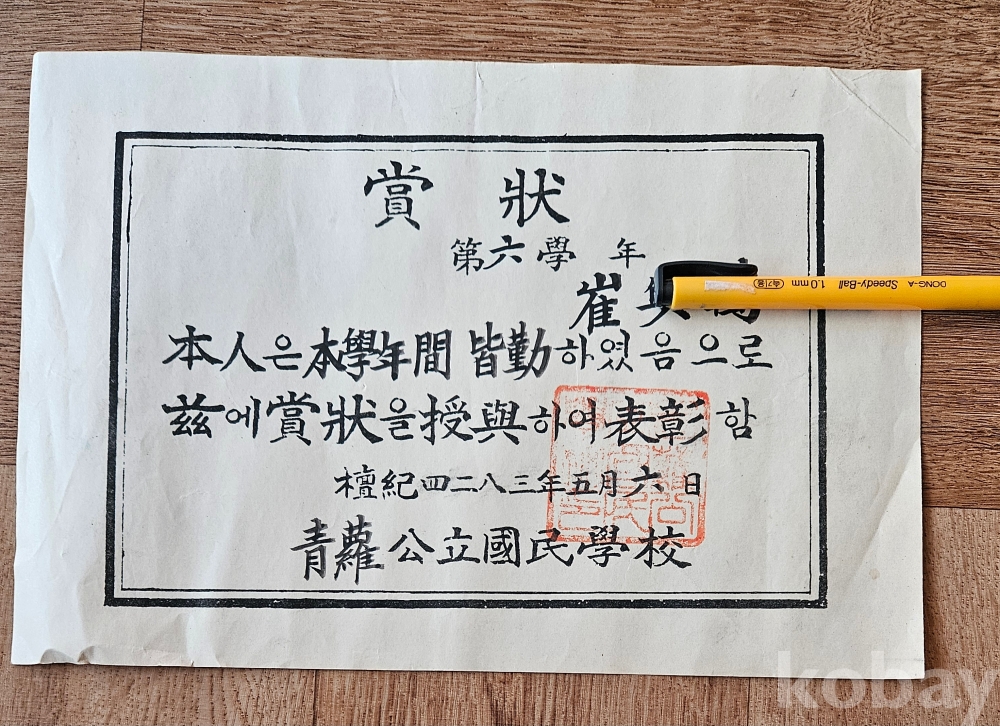 賞狀
第六學年
崔
本人은本學年間 皆勤하였음으로
玆에賞狀을授與하여表彰함
檀紀四二八三年五月六日
青蘿公立國民學校
DONG-A Speedy-Ball 1.0mm
kobay